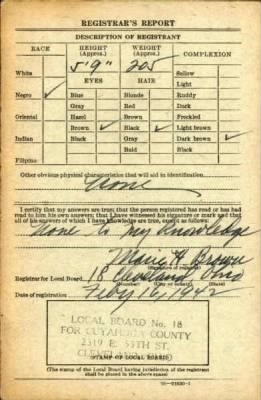 REGISTRAR'S REPORT
DESCRIPTION OF REGISTRANT
RACE
HEIGHT
(Approx.)
WEIGHT
(Approx.)
COMPLEXION
White
5'9"
205
Sallow
EYES
HAIR
Light
Negro ✓
Blue
Blonde
Ruddy
Gray
Red
Dark
Oriental
Hazel
Brown
Freckled
Brown ✓
Black ✓
Light brown
Indian
Black
Gray
Dark brown ✓
Bald
Black
Filipino
Other obvious physical characteristics that will aid in identification
None
I certify that my answers are true; that the person registered has read or has had
read to him his own answers; that I have witnessed his signature or mark and that
all of his answers of which I have knowledge are true, except as follows:
None to my knowledge
Marie H Brown
(Signature of registrar)
Registrar for Local Board 18 Cleveland Ohio
(Number) (City or county) (State)
Date of registration Feby 16, 1942
LOCAL BOARD No. 18
FOR CUYAHOGA COUNTY
2319 E. 55TH ST.
CLEVELAND
(STAMP OF LOCAL BOARD)
(The stamp of the Local Board having jurisdiction of the registrant
shall be placed in the above space.)